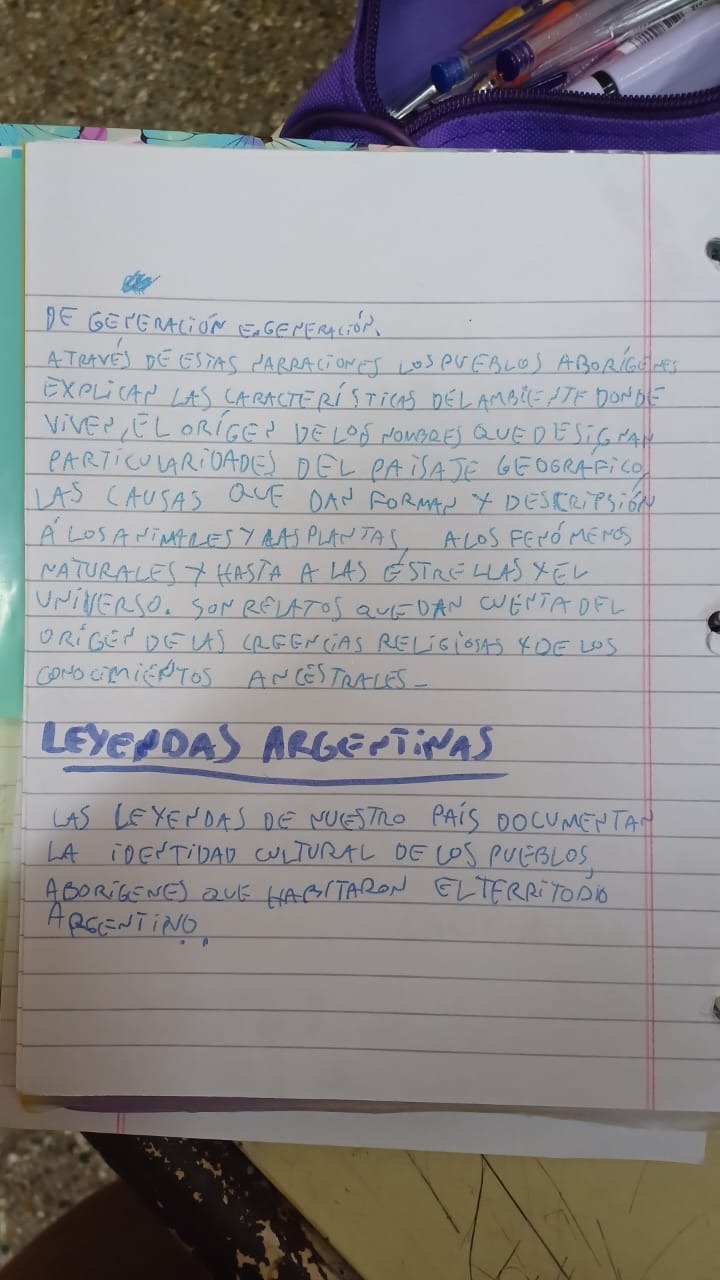 DE GENERACIÓN EN GENERACIÓN.
ATRAVÉS DE ESTAS NARRACIONES LOS PUEBLOS ABORÍGENES
EXPLICAN LAS CARACTERÍSTICAS DEL AMBIENTE DONDE
VIVEN, EL ORÍGEN DE LOS NOMBRES QUE DESIGNAN
PARTICULARIDADES DEL PAISAJE GEOGRAFICO,
LAS CAUSAS QUE DAN FORMAN Y DESCRIPSIÓN
Á LOS ANIMALES Y LAS PLANTAS, A LOS FENÓMENOS
NATURALES Y HASTA A LAS ÉSTRELLAS Y EL
UNIVERSO. SON RELATOS QUE DAN CUENTA DEL
ORÍGEN DE LAS CREENCIAS RELIGIOSAS Y DE LOS
CONOCIMIENTOS ANCESTRALES-
LEYENDAS ARGENTINAS
LAS LEYENDAS DE NUESTRO PAÍS DOCUMENTAN
LA IDENTIDAD CULTURAL DE LOS PUEBLOS,
ABORÍGENES QUE HABITARON EL TERRITODIO
ARGENTINO.